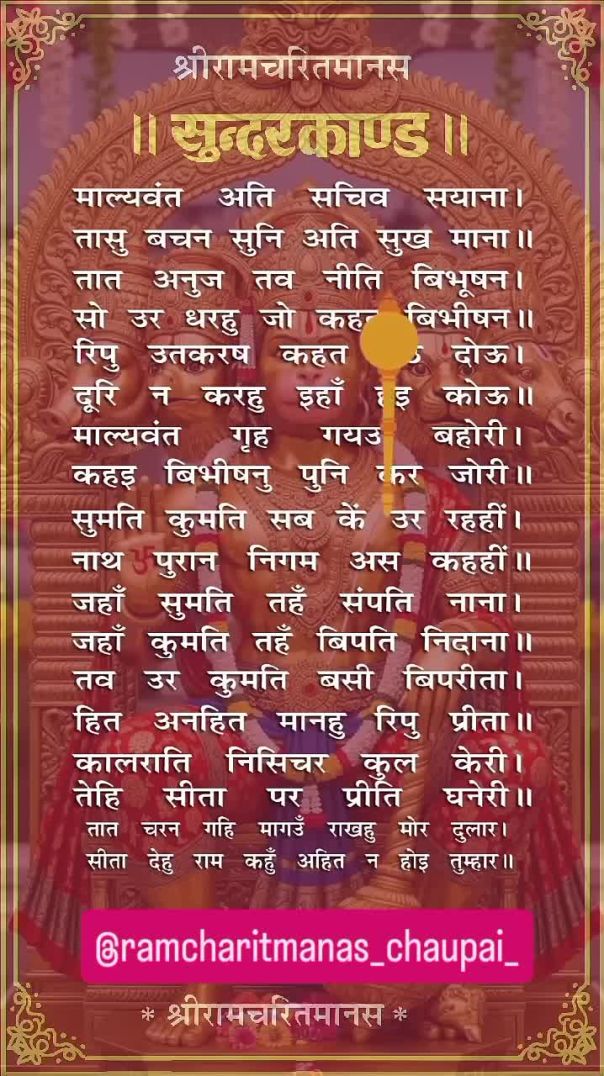 श्रीरामचरितमानस
॥ सुन्दरकाण्ड ॥
माल्यवंत अति सचिव सयाना।
तासु बचन सुनि अति सुख माना॥
तात अनुज तव नीति बिभूषन।
सो उर धरहु जो कहत बिभीषन॥
रिपु उतकरष कहत दोऊ।
दूरि न करहु इहाँ हइ कोऊ॥
माल्यवंत गृह गयउ बहोरी।
कहइ बिभीषनु पुनि कर जोरी॥
सुमति कुमति सब कें उर रहहीं।
नाथ पुरान निगम अस कहहीं॥
जहाँ सुमति तहँ संपति नाना।
जहाँ कुमति तहँ बिपति निदाना॥
तव उर कुमति बसी बिपरीता।
हित अनहित मानहु रिपु प्रीता॥
कालराति निसिचर कुल केरी।
तेहि सीता पर प्रीति घनेरी॥
तात चरन गहि मागउँ राखहु मोर दुलार।
सीता देहु राम कहुँ अहित न होइ तुम्हार॥
@ramcharitmanas_chaupai_
* श्रीरामचरितमानस *